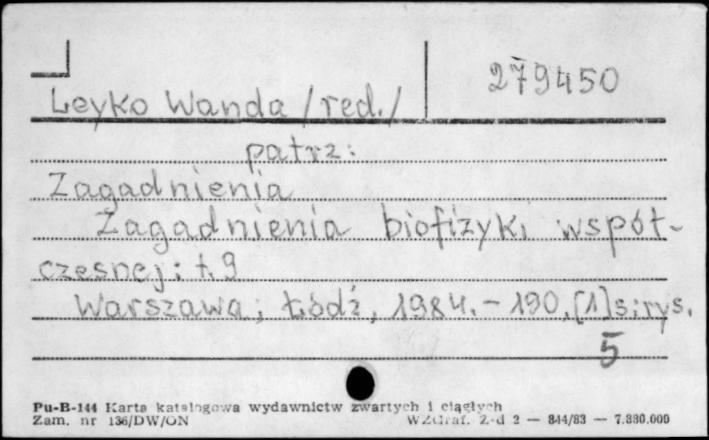 279450
Leyko Wanda /red./
patrz:
Zagadnienia
Zagadnienia biofizyki współ-
czesnej: t. 9
Warszawa; Łódź, 1984. - 190, [1] s: rys.
5
Pu-B-144 Karta katalogowa wydawnictw zwartych i ciągłych
Zam. nr 136/DW/ON WZGraf. Z-d 2 — 844/83 — 7.880.000